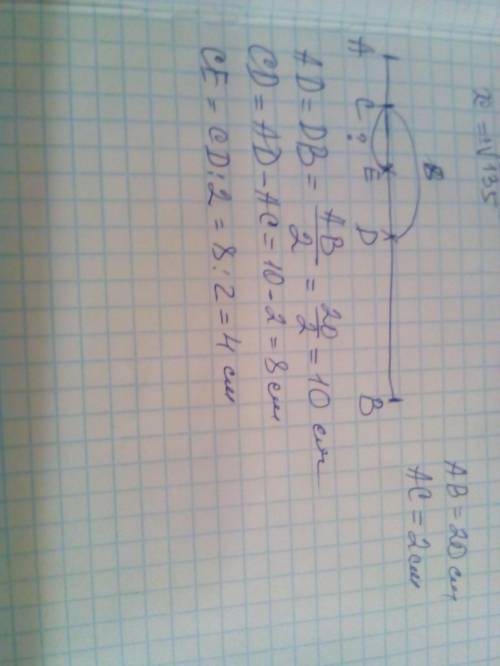 x = √135
AB = 20 см
AC = 2 см
8
A C ? E D B
AD = DB = AB/2 = 20/2 = 10 см
CD = AD - AC = 10 - 2 = 8 см
CE = CD : 2 = 8 : 2 = 4 см